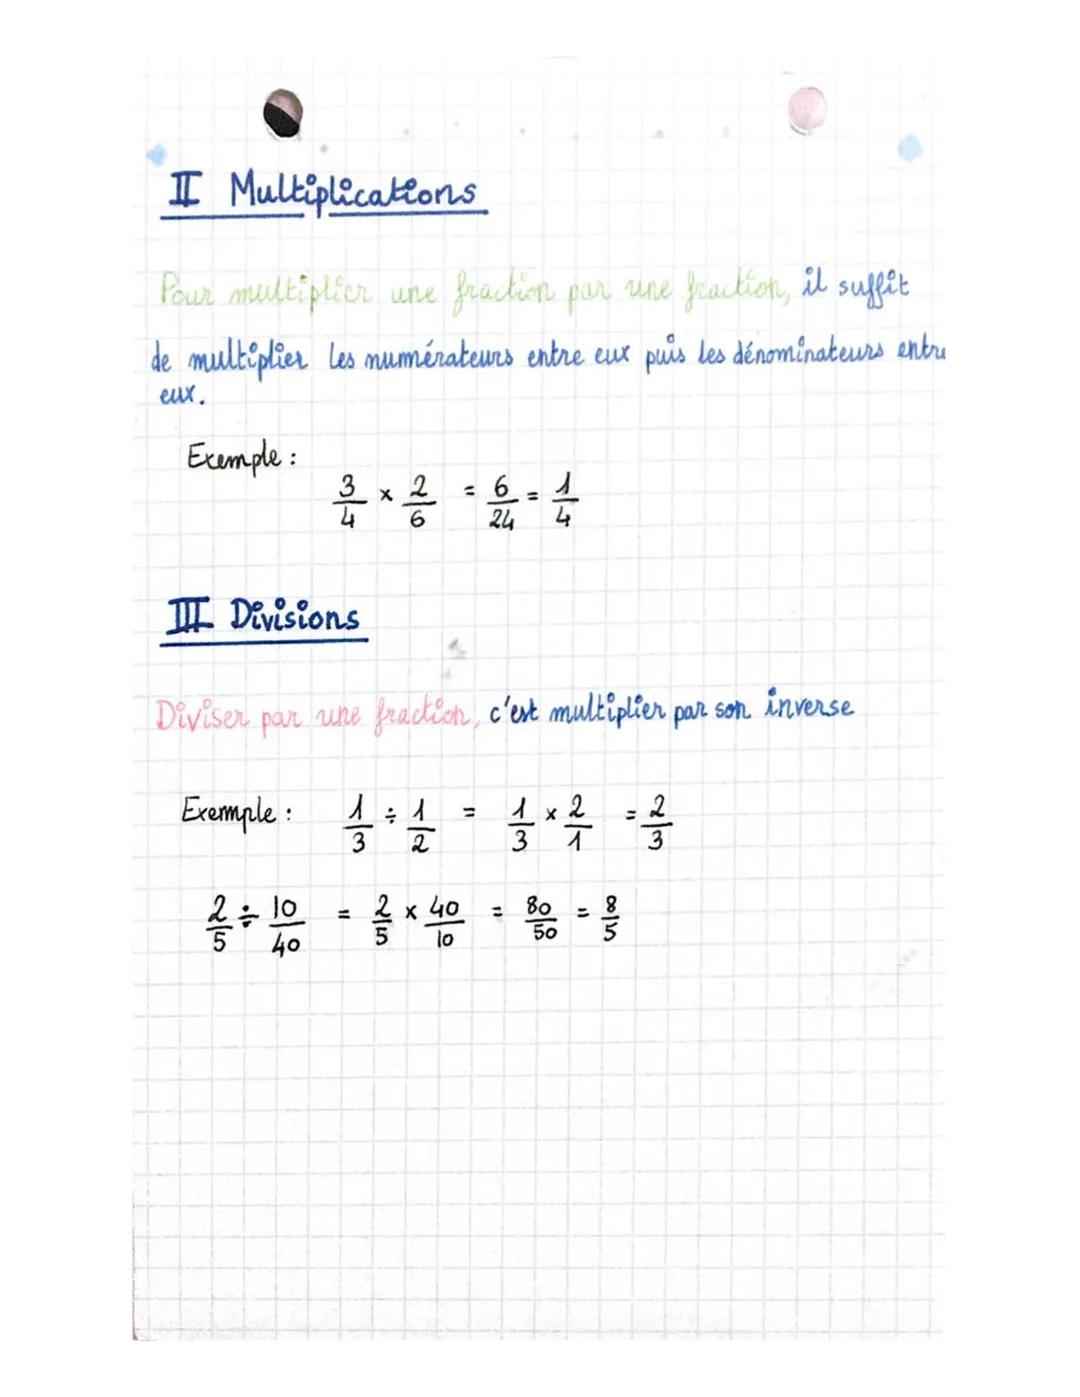 II Multiplications
Pour multiplier une fraction par une fraction, il suffit
de multiplier les numérateurs entre eux puis les dénominateurs entre
eux.
Exemple :
3/4 × 2/6 = 6/24 = 1/4
III Divisions
Diviser par une fraction, c'est multiplier par son inverse
Exemple : 1/3 ÷ 1/2 = 1/3 × 2/1 = 2/3
2/5 ÷ 10/40 = 2/5 × 40/10 = 80/50 = 8/5